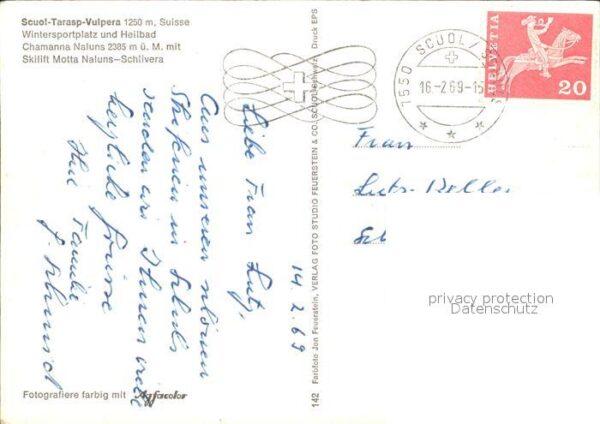 Scuol-Tarasp-Vulpera 1250 m, Suisse
Wintersportplatz und Heilbad
Chamanna Naluns 2385 m ü. M. mit
Skilift Motta Naluns—Schlivera
14.2.69
Liebe Frau Lutz,
Aus unseren schönen
Skiferien in Schuls
senden wir Ihnen viele
herzliche Grüsse
Ihre Familie
Fotografiere farbig mit Agfacolor
142 Farbfoto Jon Feuerstein, VERLAG FOTO STUDIO FEUERSTEIN & CO. SCUOL (Schweiz) Druck EPS
1550 SCUOL/S
16-2.69-15
HELVETIA
20
Frau
Lutz-Keller
Sch
privacy protection
Datenschutz